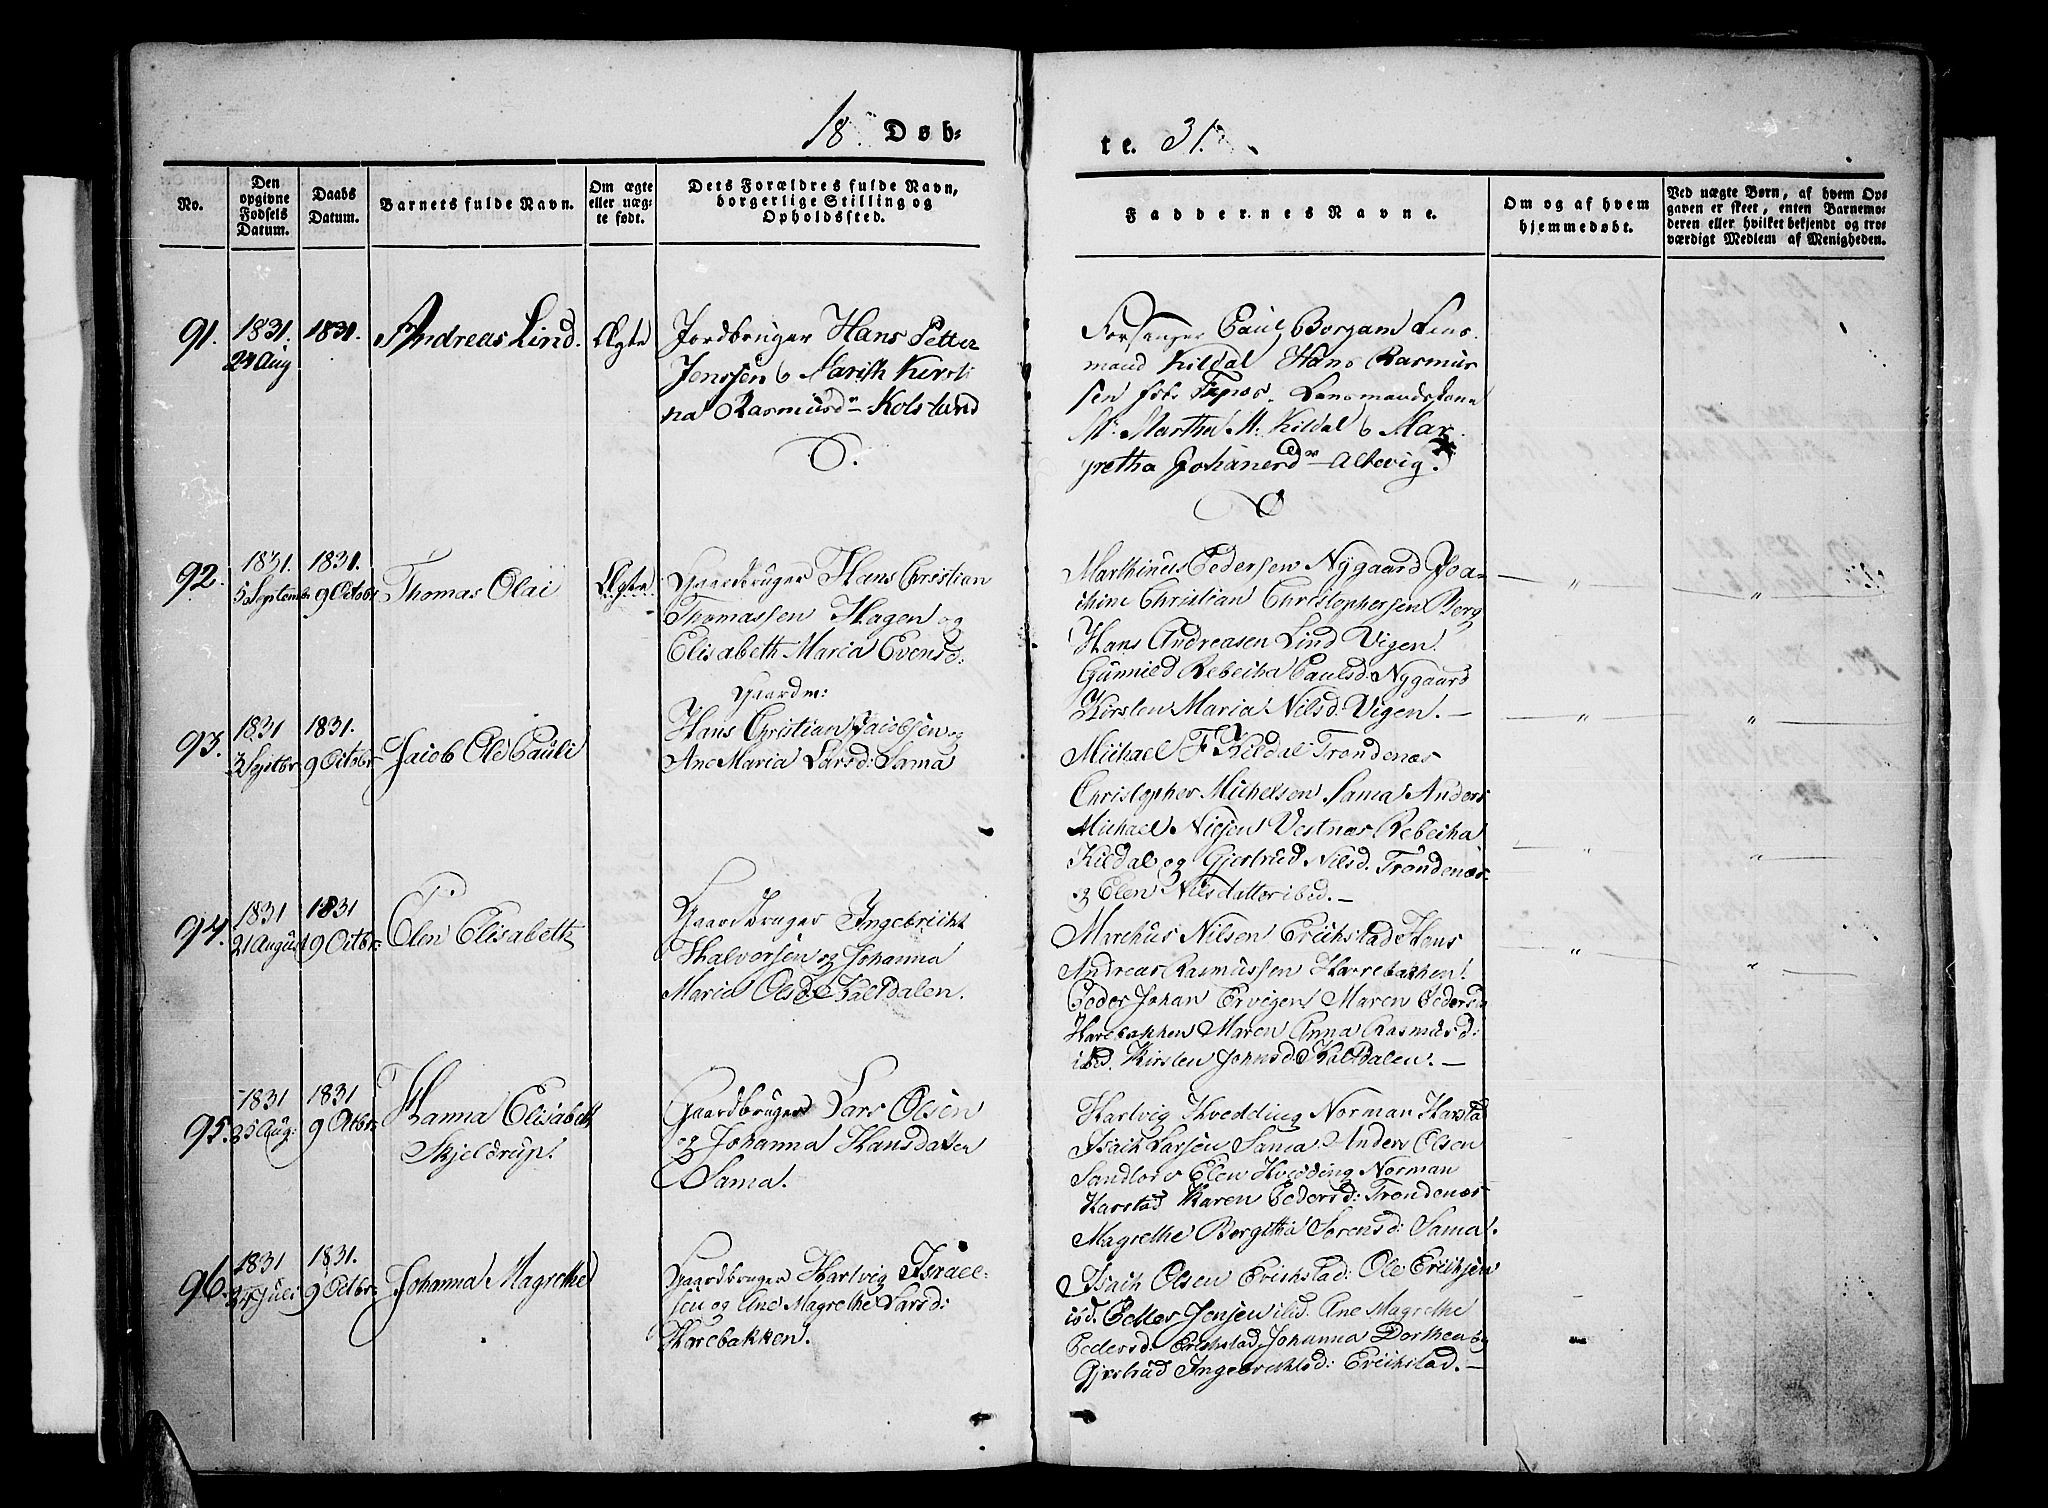 18 Døb-
te. 31.
No.
Den
opgivne
Fødsels
Datum.
Daabs
Datum.
Barnets fulde Navn.
Om ægte
eller uæg-
te født.
Dets Forældres fulde Navn,
borgerlige Stilling og
Opholdssted.
Faddernes Navne.
Om og af hvem
hjemmedøbt.
Ved uægte Børn, af hvem Op-
gaven er skeet, enten Barnemo-
deren eller hvilket bekjendt og tro-
værdigt Medlem af Menigheden.
91.
1831.
24 Aug
1831.
Andreas Lind.
Ægte
Jordbruger Hans Petter
Jenssen & Marith Kirsti
na Rasmusdr Kolstand
Forsanger Paul Borgan Lens
mand Kildal Hans Rasmus
sen Lensmandskone
Martha M: Kildal & Mar
gretha Johanesdr Altevig.
92.
1831.
5 Septembr
1831.
9 Octobr
Thomas Olai
Ægte
Gaardbruger Hans Christian
Thomassen Hagen og
Elisabeth Maria Evensd:
Marthinus Pedersen Nygaard Joa-
chim Christian Christophersen Berg
Hans Andreasen Lind Vigen!
Gunnild Rebecha Paulsd: Nygaard
Kirsten Maria Nilsd: Vigen. —
93.
1831
3 Septbr
1831.
9 Octobr
Jacob Ole Pauli
Gaardm:
Hans Christian Jacobsen og
Ane Maria Larsd: Sama
Michael F Kildal Trondenæs
Christopher Michelsen Sama Anders
Michael Nielsen Vestnes Rebecha
Kildal og Gjertrud Nilsd. Trondenæs
og Elen Nilsdatter ibid. —
94.
1831
21 August
1831
9 Octbr:
Elen Elisabeth
Gaardbruger Ingebricht
Halvorsen og Johanna
Maria Olsd: Kaltdalen.
Marchus Nilsen Erichstad Hans
Andreas Rasmussen Harrebachen!
Peder Johan Ervigen Maren Pedersd
Harebakken Maren Anna Rasmusd:
ibid. Kirsten Johnsd: Kaltdalen. —
95.
1831
25 Aug:
1831
9 Octbr:
Hanna Elisabeth
Skjeldrup!
Gaardbruger Lars Olsen
og Johanna Hansdatter
Sama.
Hartvig Hvedding Norman Harstad
Isach Larsen Sama Anders Olsen
Sandtorv Elen Hvedding Norman
Harstad Karen Pedersd: Trondenæs
Magrethe Borgitha Sørensd: Sama!
96.
1831
Juli
1831.
9 Octbr:
Johanna Magrethe
Gaardbruger Hartvig Israel-
sen og Ane Magrethe Larsd:
Harebakken.
Isach Olsen Erichstad: Ole Erichsen
ibd. Petter Jensen ibd. Ane Magrethe
Pedersd: Erichstad Johanna Dorthea og
Gjertrud Ingebrichtsd: Erichstad. —